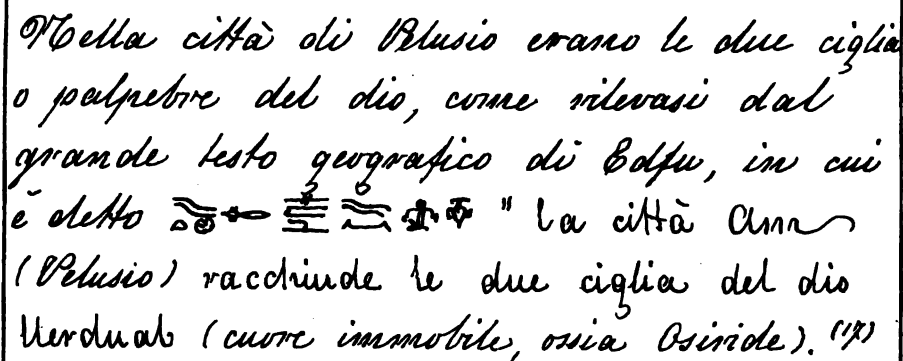 Nella città di Pelusio erano le due ciglia
o palpebre del dio, come rilevasi dal
grande testo geografico di Edfu, in cui
è detto " la città Am
(Pelusio) racchiude le due ciglia del dio
Uerduab (cuore immobile, ossia Osiride). (17)